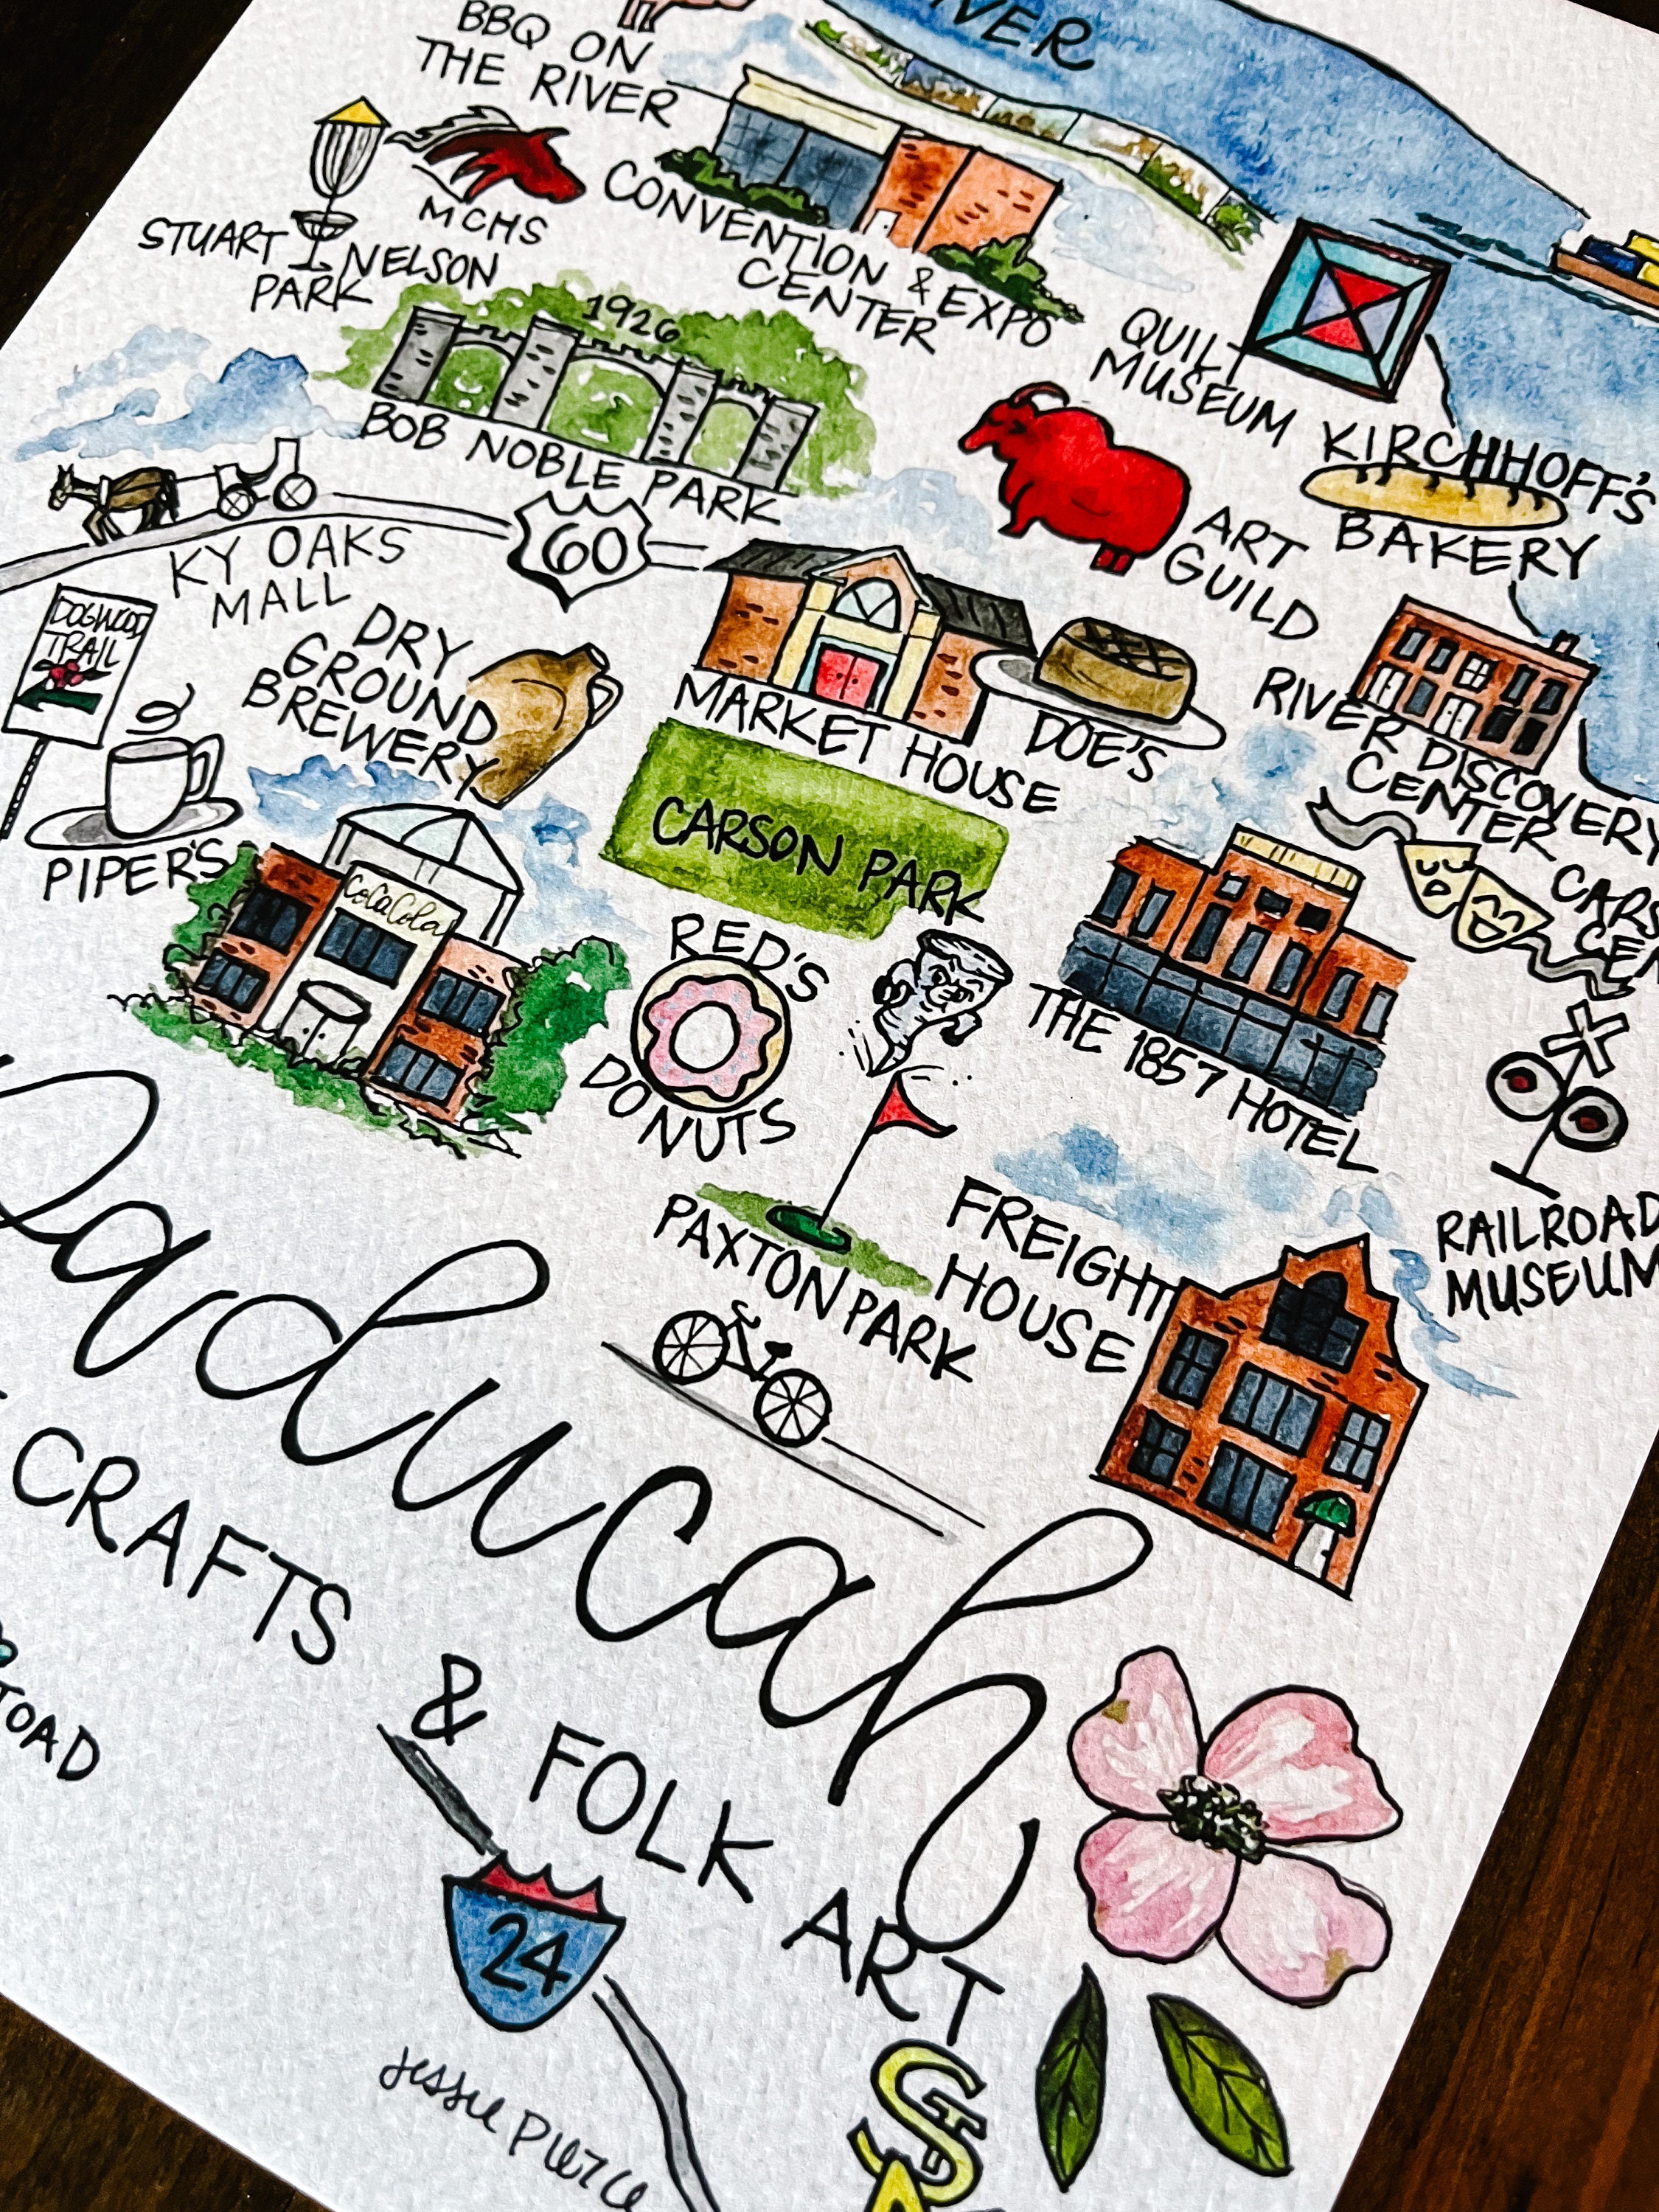 RIVER
BBQ ON
THE RIVER
MCHS
STUART NELSON
PARK
CONVENTION & EXPO
CENTER
1926
BOB NOBLE PARK
QUILT
MUSEUM
KIRCHHOFF'S
BAKERY
ART
GUILD
60
KY OAKS
MALL
DOGWOOD
TRAIL
DRY
GROUND
BREWERY
MARKET HOUSE
DOE'S
RIVER DISCOVERY
CENTER
PIPER'S
CocaCola
CARSON PARK
CARS
CEN
RED'S
DONUTS
THE 1857 HOTEL
RAILROAD
MUSEUM
PAXTON PARK
FREIGHT
HOUSE
Paducah
CRAFTS & FOLK ART
TOAD
24
Jessie Pierce